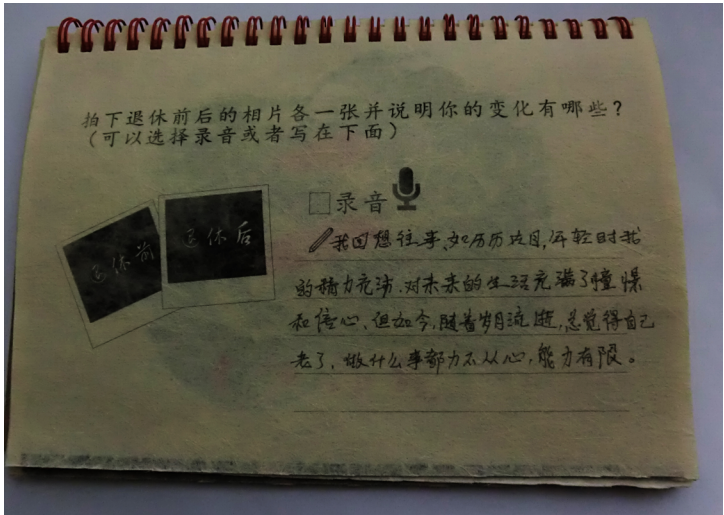 拍下退休前后的相片各一张并说明你的变化有哪些？
（可以选择录音或者写在下面）
退休前
退休后
录音
我回想往事，如历历在目，年轻时我
的精力充沛，对未来的生活充满了憧憬
和信心，但如今，随着岁月流逝，总觉得自己
老了，做什么事都力不从心，能力有限。